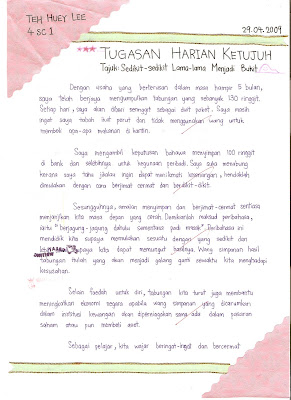 TEH HUEY LEE
4 SC 1
29.04.2009
*** TUGASAN HARIAN KETUJUH
Tajuk: Sedikit-sedikit Lama-lama Menjadi Bukit
Dengan usaha yang berterusan dalam masa hampir 5 bulan,
saya telah berjaya mengumpulkan tabungan yang sebanyak 130 ringgit.
Setiap hari, saya akan diberi seringgit sebagai duit poket. Saya masih
ingat saya tabah ikat perut dan tidak menggunakan wang untuk
membeli apa-apa makanan di kantin.
Saya mengambil keputusan bahawa menyimpan 100 ringgit
di bank dan selebihnya untuk kegunaan peribadi. Saya suka menabung
kerana saya tahu jikalau ingin dapat menikmati kesenangan, hendaklah
dimulakan dengan cara berjimat cermat dan berdikit-dikit.
Sesungguhnya, amalan menyimpan dan berjimat-cermat sentiasa
menjanjikan kita masa depan yang cerah. Demikianlah maksud peribahasa,
iaitu "Berjagung-jagung dahulu sementara padi masak". Peribahasa ini
mendidik kita supaya memulakan sesuatu dengan yang sedikit dan
supaya kita dapat memungut hasilnya. Wang simpanan hasil
tabungan itulah yang akan menjadi galang ganti sewaktu kita menghadapi
kesusahan.
Selain faedah untuk diri, tabungan kita turut juga membantu
meningkatkan ekonomi negara apabila wang simpanan yang dilaburkan
dalam institusi kewangan akan diperniagakan sama ada dalam pasaran
saham atau pun membeli aset.
Sebagai pelajar, kita wajar beringat-ingat dan bercermat